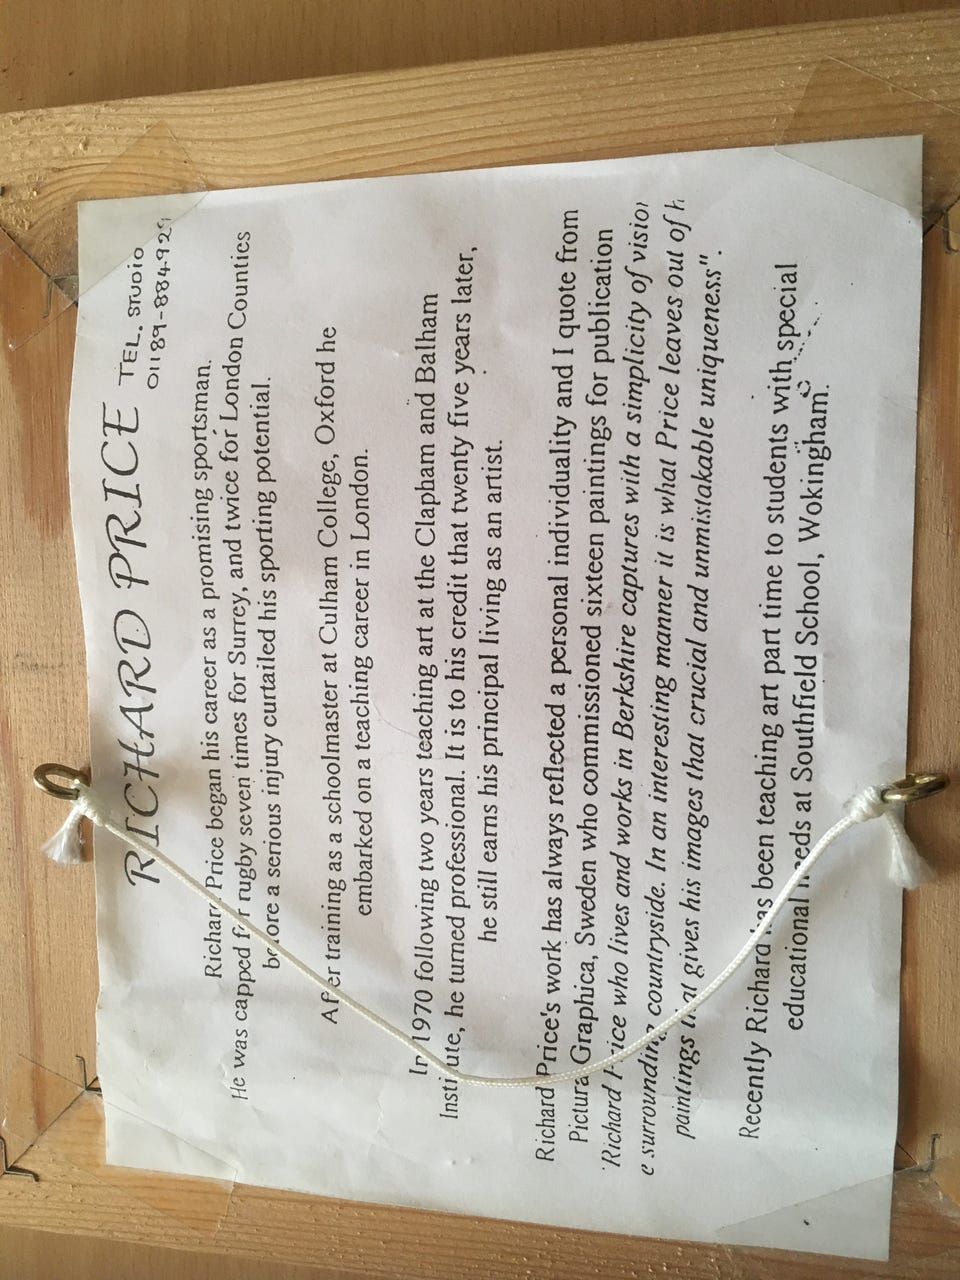 RICHARD PRICE
TEL. STUDIO
01189-88492
Richard Price began his career as a promising sportsman.
He was capped for rugby seven times for Surrey, and twice for London Counties
before a serious injury curtailed his sporting potential.
After training as a schoolmaster at Culham College, Oxford he
embarked on a teaching career in London.
In 1970 following two years teaching art at the Clapham and Balham
Institute, he turned professional. It is to his credit that twenty five years later,
he still earns his principal living as an artist.
Richard Price's work has always reflected a personal individuality and I quote from
Pictura Graphica, Sweden who commissioned sixteen paintings for publication
'Richard Price who lives and works in Berkshire captures with a simplicity of vision
e surrounding countryside. In an interesting manner it is what Price leaves out of h
paintings that gives his images that crucial and unmistakable uniqueness".
Recently Richard has been teaching art part time to students with special
educational needs at Southfield School, Wokingham.